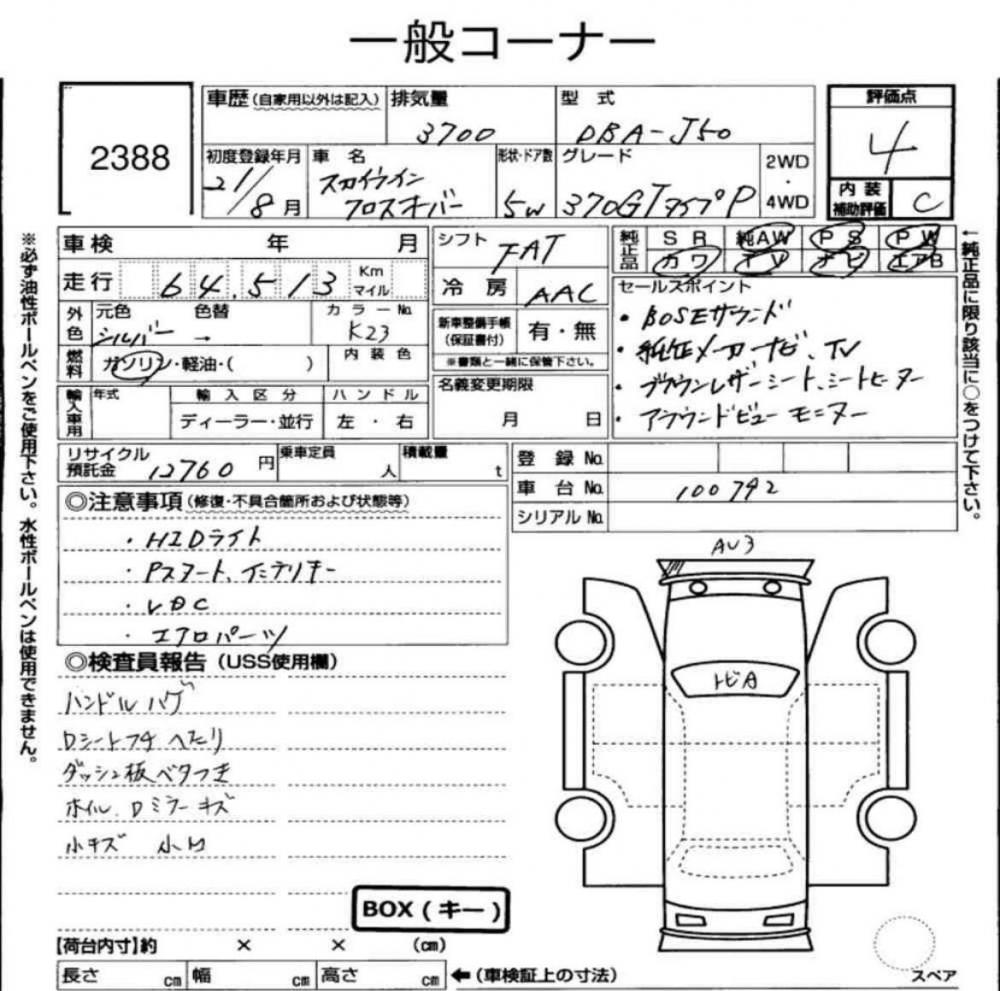 一般コーナー
2388
車歴 (自家用以外は記入) 排気量 型式 評価点
3700 DBA-J50 4
初度登録年月 車名 形状・ドア数 グレード 2WD・4WD
21/8月 スカイライン クロスオーバー 5W 370GT タイプP
内装補助評価 C
車検 年 月 シフト FAT 純正品 SR 純AW PS PW
カワ TV ナビ エアB
走行 64,513 Km マイル 冷房 AAC
外色 元色 色替 カラーNo.
シルバー → K23
新車整備手帳(保証書付) 有・無
※書類と一緒に保管下さい。
燃料 ガソリン・軽油・( ) 内装色
名義変更期限 月 日
輸入車用 年式 輸入区分 ハンドル
ディーラー・並行 左・右
セールスポイント
・BOSEサウンド
・純正メーカーナビ、TV
・ブラウンレザーシート、シートヒーター
・アラウンドビューモニター
リサイクル預託金 12760円 乗車定員 人 積載量 t
登録No.
車台No. 100792
シリアルNo.
◎注意事項(修復・不具合箇所および状態等)
・HIDライト
・Pスタート、インテリキー
・VDC
・エアロパーツ
◎検査員報告(USS使用欄)
ハンドルハゲ
Dシートフチ へたり
ダッシュ板ベタつき
ホイル、Dミラーキズ
小キズ
AU3
トビA
BOX(キー)
【荷台内寸】約 × × (cm)
長さ cm 幅 cm 高さ cm ←(車検証上の寸法)
スペア
※必ず油性ボールペンをご使用下さい。水性ボールペンは使用できません。
←純正品に限り該当に○をつけて下さい。